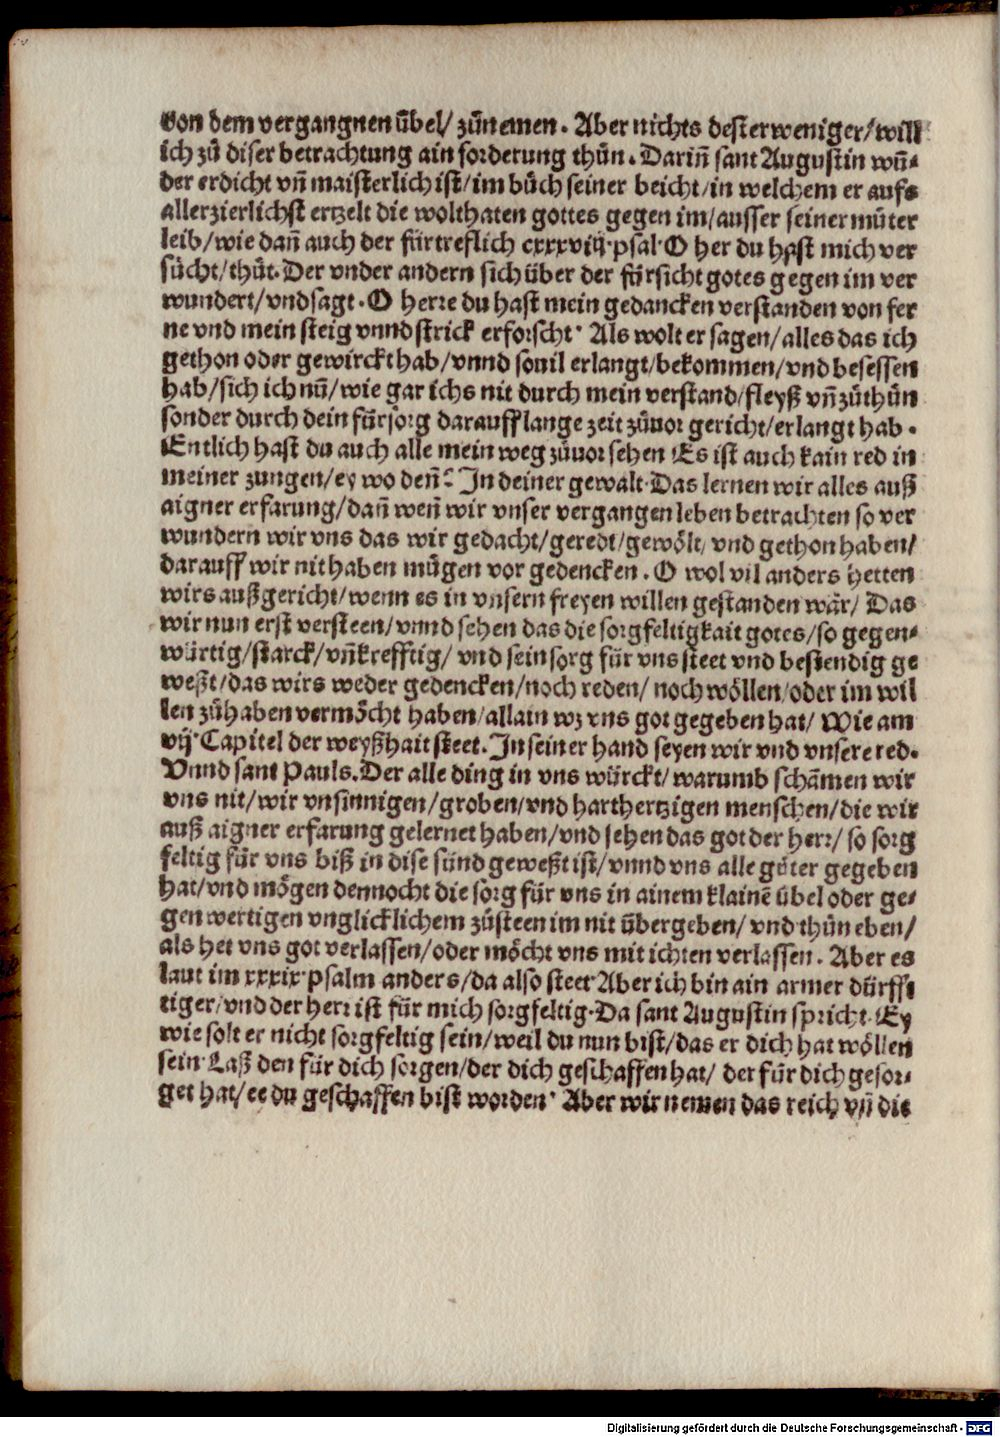 von dem vergangnen übel/ zůnemen. Aber nichts desterweniger/will
ich zů diser betrachtung ain forderung thůn. Dariñ sant Augustin wũ-
der erdicht vñ maisterlich ist/im bůch seiner beicht/in welchem er aufs
allerzierlichst ertzelt die wolthaten gottes gegen im/ausser seiner můter
leib/wie dañ auch der fürtreflich cxxxviij. psal. O her du hast mich ver
sůcht/thůt. Der vnder andern sich über der fürsicht gotes gegen im ver
wundert/vnd sagt. O herre du hast mein gedancken verstanden von fer
ne vnd mein steig vnnd strick erforscht. Als wolt er sagen/alles das ich
gethon oder gewirckt hab/vnnd souil erlangt/bekommen/vnd besessen
hab/sich ich nũ/wie gar ichs nit durch mein verstand/fleyß vñ zůthůn
sonder durch dein fürsorg darauff lange zeit zůuor gericht/erlangt hab.
Entlich hast du auch alle mein weg zůuor sehen Es ist auch kain red in
meiner zungen/ey wo deñ? In deiner gewalt. Das lernen wir alles auß
aigner erfarung/dañ weñ wir vnser vergangen leben betrachten so ver
wundern wir vns das wir gedacht/geredt/gewölt/ vnd gethon haben/
darauff wir nit haben mügen vor gedencken. O wol vil anders hetten
wirs außgericht/wenn es in vnsern freyen willen gestanden wär/ Das
wir nun erst versteen/vnnd sehen das die sorgfeltigkait gotes/so gegen-
würtig/starck/vñ krefftig/ vnd sein sorg für vns steet vnd bestendig ge
weßt/das wirs weder gedencken/noch reden/ noch wöllen/oder im wil
len zůhaben vermöcht haben/allain wz vns got gegeben hat/ Wie am
vij. Capitel der weyßhait steet. In seiner hand seyen wir vnd vnsere red.
Vnnd sant Pauls. Der alle ding in vns würckt/warumb schämen wir
vns nit/wir vnsinnigen/groben/vnd harthertzigen menschen/die wir
auß aigner erfarung gelernet haben/vnd sehen das got der herr/ so sorg
feltig für vns biß in dise stünd geweßt ist/vnnd vns alle güter gegeben
hat/vnd mögen dennocht die sorg für vns in ainem klainẽ übel oder ge-
gen wertigen vnglicklichem zůsteen im nit übergeben/ vnd thůn eben/
als het vns got verlassen/oder möcht vns mit ichten verlassen. Aber es
laut im xxxix. psalm anders/da also steet Aber ich bin ain armer dürff-
tiger/vnd der herr ist für mich sorgfeltig. Da sant Augustin spricht. Ey
wie solt er nicht sorgfeltig sein/weil du nun bist/das er dich hat wöllen
sein. Laß den für dich sorgen/der dich geschaffen hat/ der für dich gesor-
get hat/ee du geschaffen bist worden. Aber wir nemen das reich vñ die
Digitalisierung gefördert durch die Deutsche Forschungsgemeinschaft - DFG